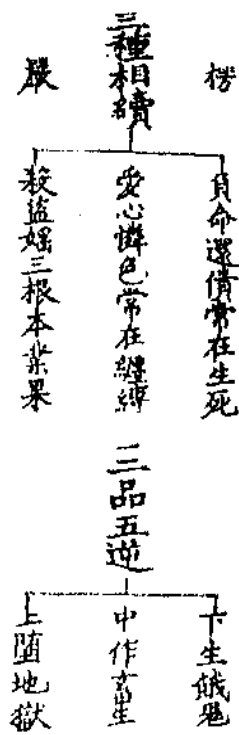 楞
嚴
三種相續
負命還債常在生死
愛心憐色常在纏縛
殺盜婬三根本業果
三品五逆
下生餓鬼
中作畜生
上墮地獄